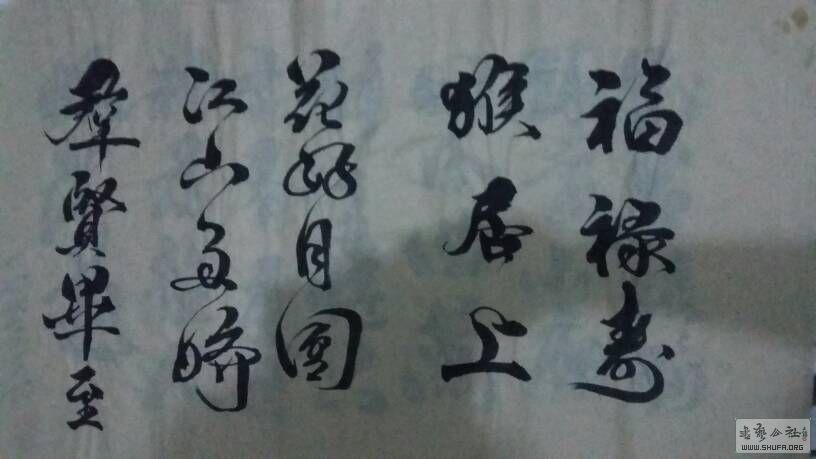 福禄寿
猴居上
花好月圆
江山多娇
群賢畢至
书艺公社
WWW.SHUFA.ORG